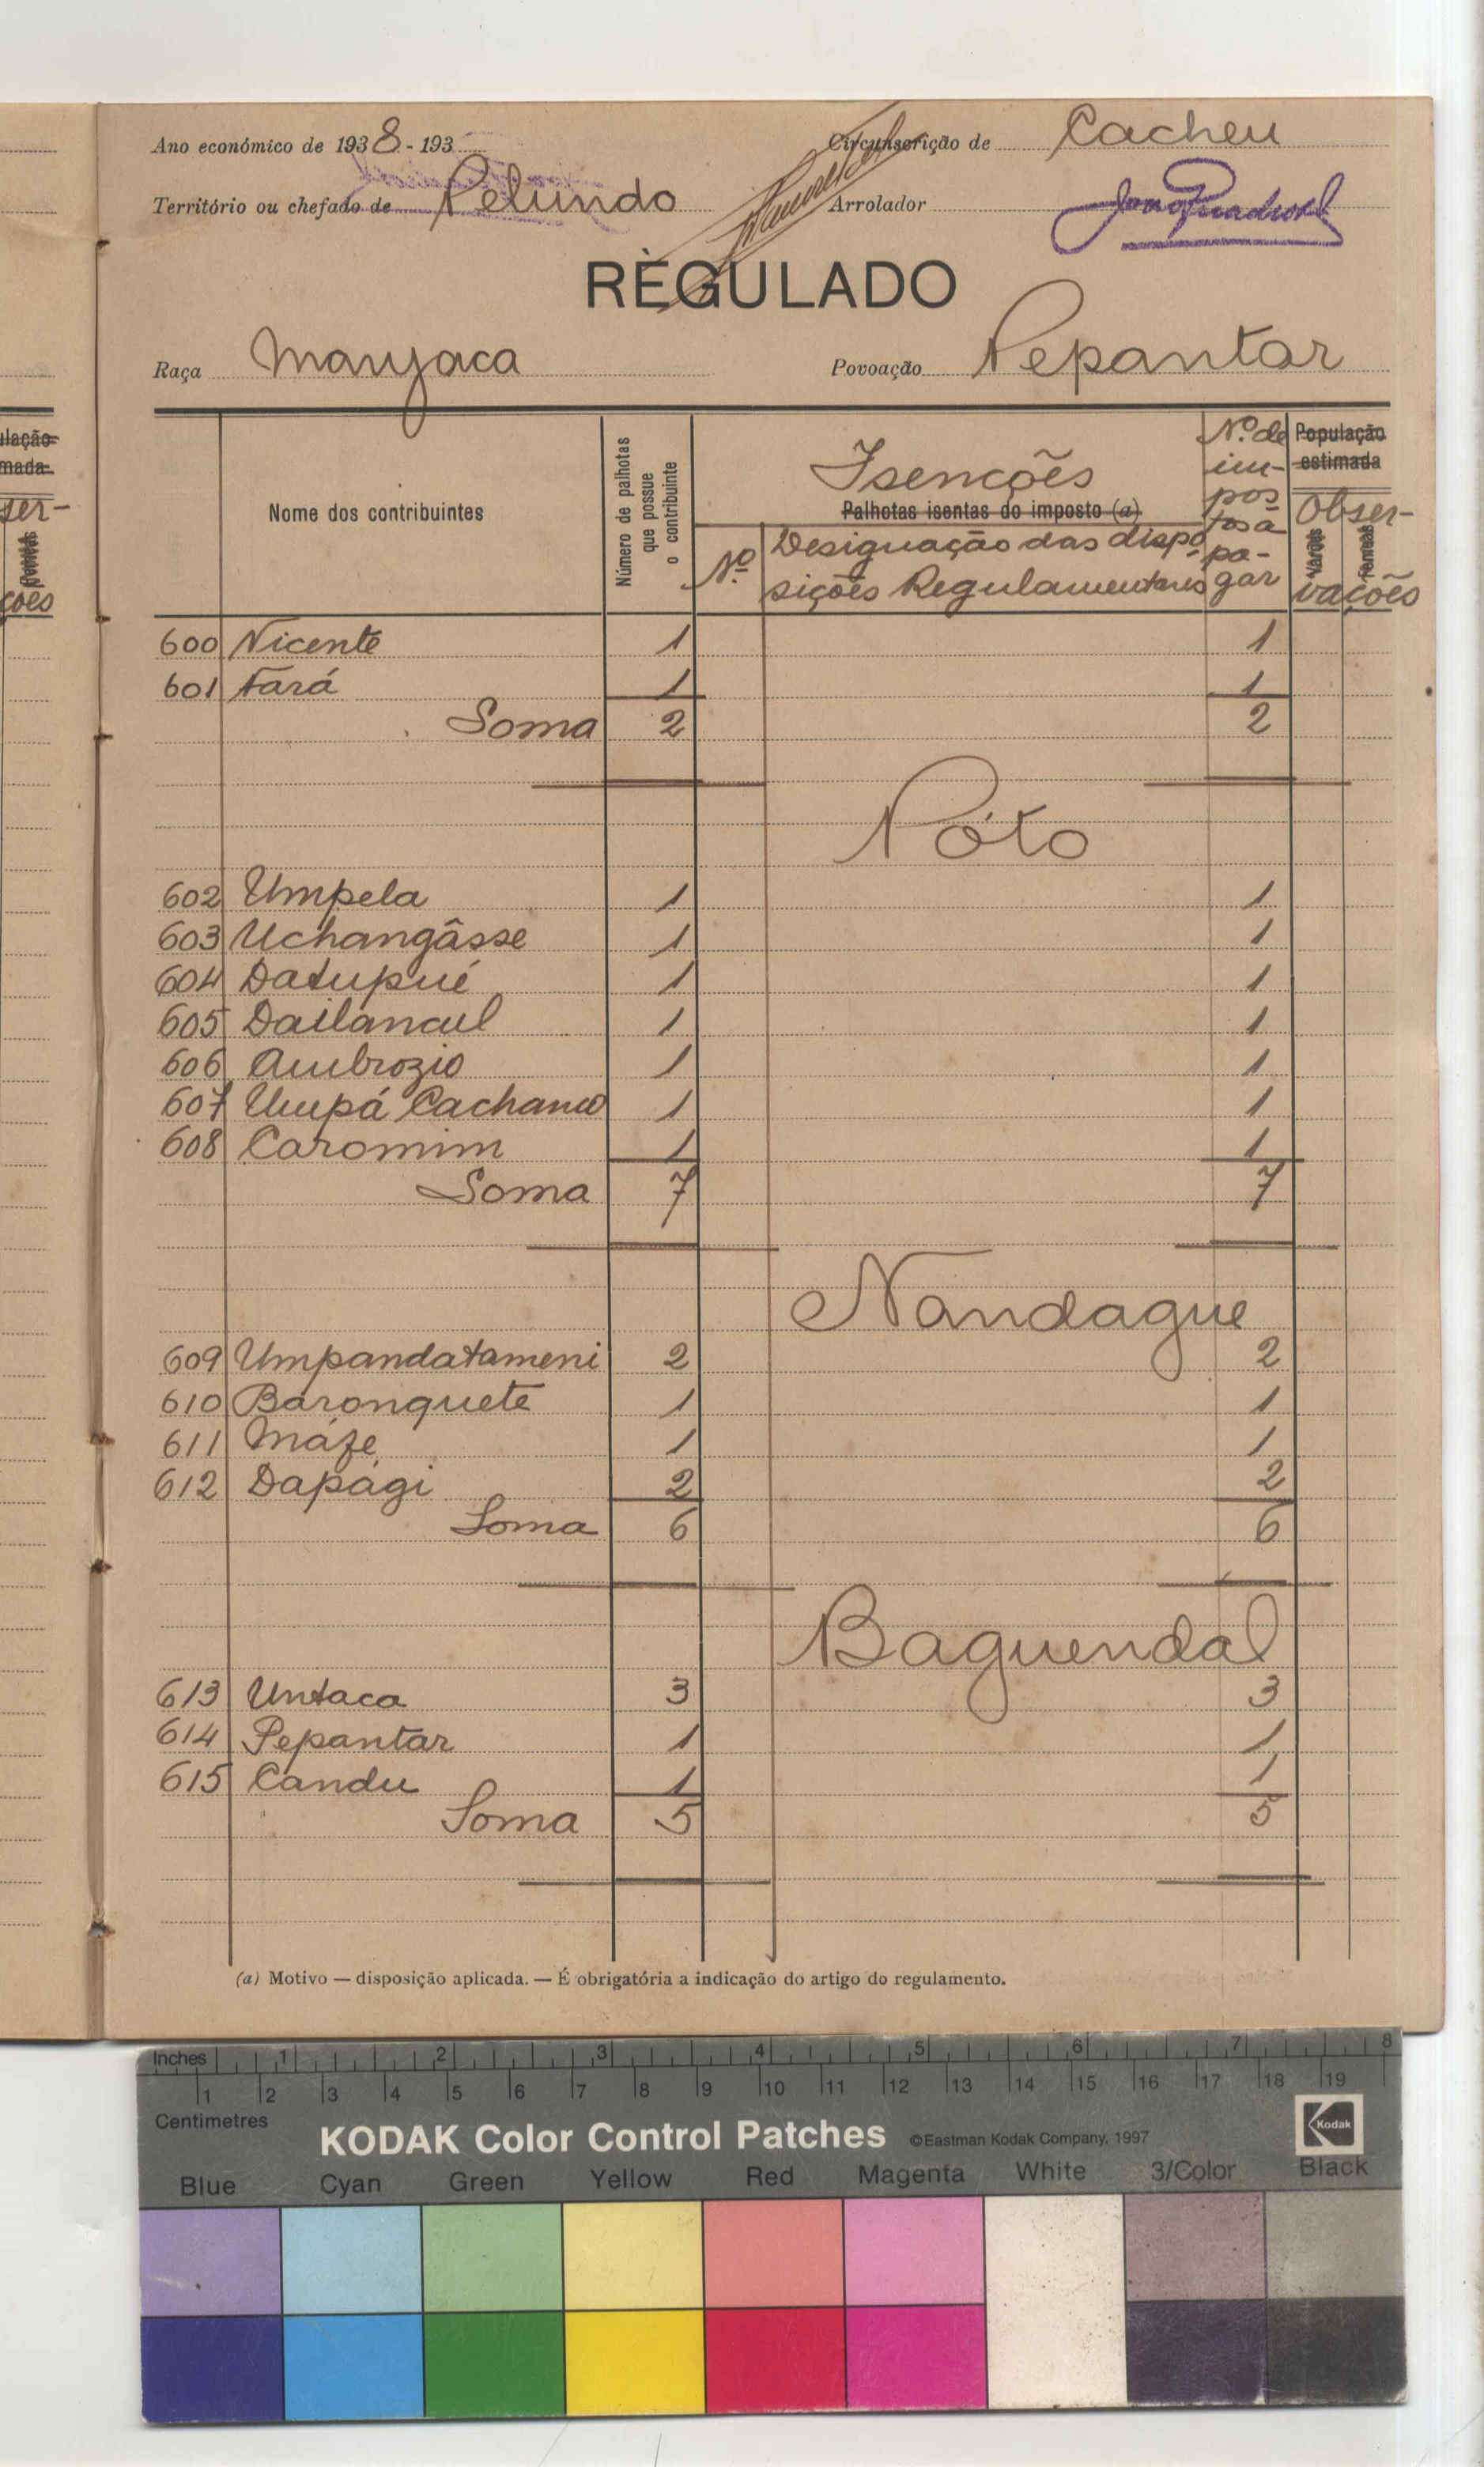 Ano económico de 1938-193
Circunscrição de Cacheu
Território ou chefado de Pelundo
Arrolador
REGULADO
Raça Manjaca
Povoação Pepantar
Nome dos contribuintes
Número de palhotas que possue o contribuinte
Isenções
Palhotas isentas do imposto (a)
Nº
Designação das dispo-
sições Regulamentares
N.º de
im-
pos
tos a
pa-
gar
População
estimada
Obser-
vações
Varões
Femeas
600 Vicente 1 1
601 Fará 1 1
Soma 2 2
Póto
602 Umpela 1 1
603 Uchangâsse 1 1
604 Datupué 1 1
605 Dailancul 1 1
606 Ambrozio 1 1
607 Umpá Cachanco 1 1
608 Caromim 1 1
Soma 7 7
Nandague
609 Umpandatameni 2 2
610 Baronquete 1 1
611 Máfe 1 1
612 Dapági 2 2
Soma 6 6
Baguendal
613 Untaca 3 3
614 Pepantar 1 1
615 Candu 1 1
Soma 5 5
(a) Motivo — disposição aplicada. — É obrigatória a indicação do artigo do regulamento.
lação
mada
ser-
ções
Inches 1 2 3 4 5 6 7 8
1 2 3 4 5 6 7 8 9 10 11 12 13 14 15 16 17 18 19
Centimetres
KODAK Color Control Patches ©Eastman Kodak Company, 1997 Kodak
Blue Cyan Green Yellow Red Magenta White 3/Color Black